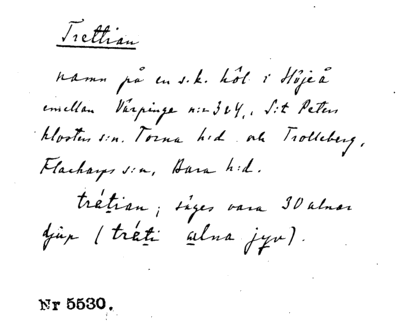 Trettian
namn på en s.k. höl i Höjeå
emellan Värpinge n:r 3 & 4, S:t Peters
klosters s:n, Torna h:d och Trolleberg,
Flackarps s:n, Bara h:d.
trétian; säges vara 30 alnar
djup (tréti alna jyv).
Nr 5530.